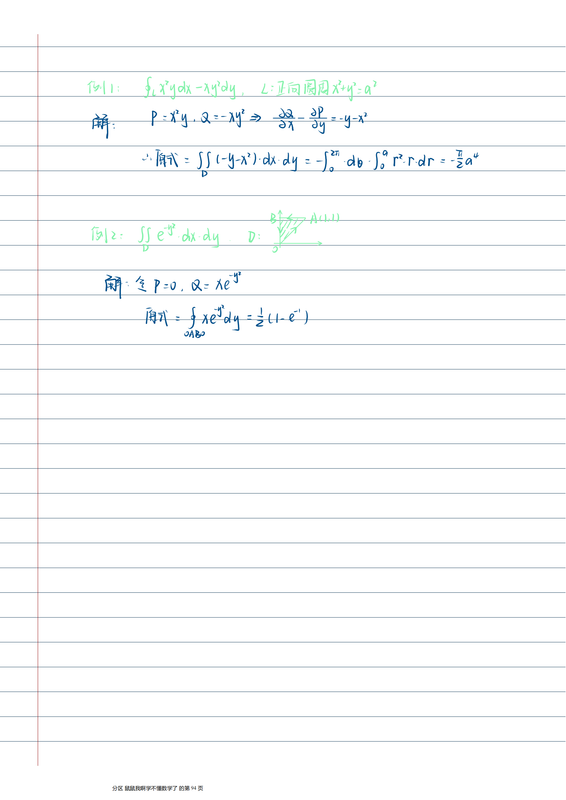 例1: ∮_L x²ydx-xy²dy, L:正向圆周x²+y²=a²
解: P=x²y, Q=-xy² ⇒ ∂Q/∂x - ∂P/∂y = -y-x²
∴原式 = ∬_D (-y-x²)·dx·dy = -∫₀^2π dθ·∫₀^a r²·r·dr = -π/2 a⁴
例2: ∬_D e^-y² dx·dy D:
B A(1,1)
O
解: 令 P=0, Q=xe^-y²
原式 = ∮_OABO xe^-y² dy = 1/2(1-e⁻¹)
分区 鼠鼠我啊学不懂数学了 的第 94 页